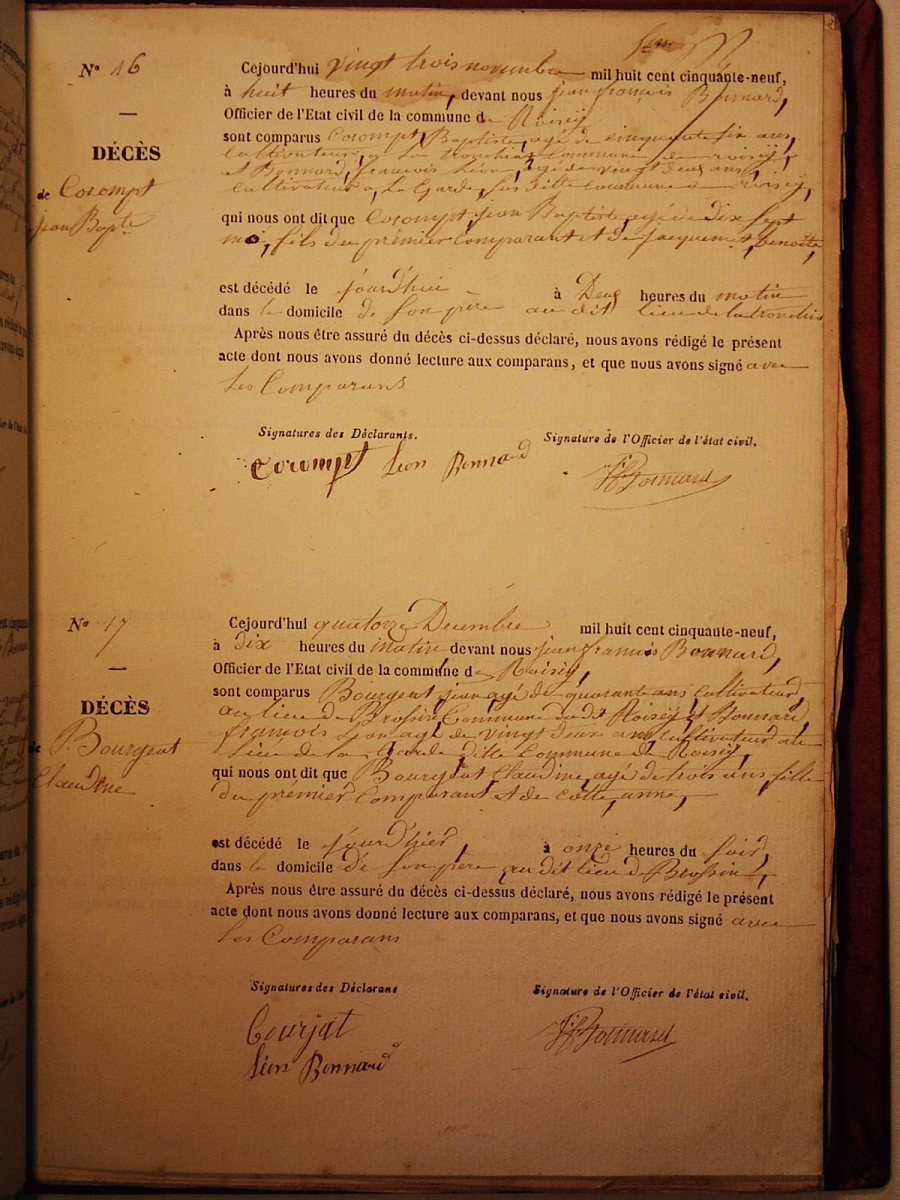 N° 16
Cejourd'hui vingt trois novembre mil huit cent cinquante-neuf,
à huit heures du matin, devant nous jean françois Bonnard,
Officier de l'Etat civil de la commune de Roisey
DÉCÈS
sont comparus Corompt, Baptiste, agé de cinquante six ans,
cultivateur, a La tronchia commune de roisey,
et Bonnard, françois Léon, agé de vingt deux ans,
de Corompt
cultivateur a La Garde, sus ditte Commune de roisey,
jean Bapte
qui nous ont dit que Corompt, jean Baptiste, agé de dix sept
moi, fils du prémier Comparant et de jacquemet, benoite,
est décédé le jourd'hui à Deux heures du matin
dans le domicile de son père au dit lieu de la tronchia
Après nous être assuré du décès ci-dessus déclaré, nous avons rédigé le présent
acte dont nous avons donné lecture aux comparans, et que nous avons signé avec
Les Comparans
Signatures des Déclarants. Signature de l'Officier de l'état civil.
Corompt Léon Bonnard
Bonnard
N° 17
Cejourd'hui quatorze Decembre mil huit cent cinquante-neuf,
à dix heures du matin devant nous jean francois Bonnard,
Officier de l'Etat civil de la commune de Roisey,
DÉCÈS
sont comparus Bourgeat, jean agé de quarante ans Cultivateur,
au lieu de Brossin, Commune du dit Roisey et Bonnard,
françois Léon agé de vingt deux ans cultivateur au
de Bourgeat
Lieu de la Garde, ditte Commune de Roisey,
Claudine
qui nous ont dit que Bourgeat Claudine, agé de trois ans, fille
du premier Comparant et de Cotte, anne,
est décédé le jourd'hier, à onze heures du soir,
dans le domicile de son pere, au dit lieu de Brossin,
Après nous être assuré du décès ci-dessus déclaré, nous avons rédigé le présent
acte dont nous avons donné lecture aux comparans, et que nous avons signé avec
les Comparans
Signatures des Déclarans Signature de l'Officier de l'état civil.
Courjat
Bonnard
Léon Bonnard